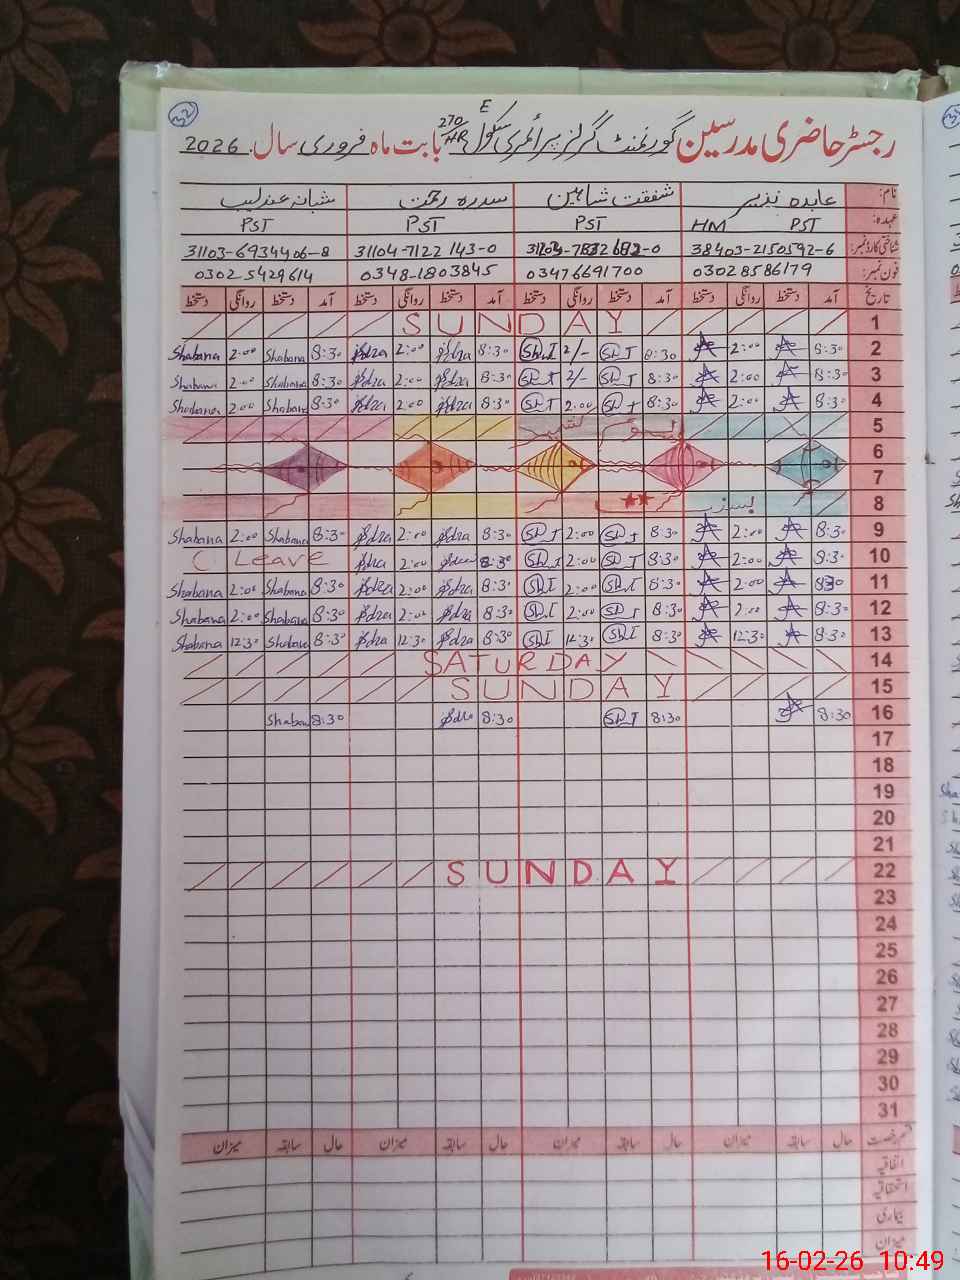 32
رجسٹر حاضری مدرسین گورنمنٹ گرلز پرائمری سکول 270/HR بابت ماہ فروری سال 2026
E
نام: عابدہ نذیر شفقت شاہین سدرہ رحمت شبانہ عندلیب
عہدہ: PST HM PST PST PST
شناختی کارڈ نمبر: 38403-2150592-6 31104-7122143-0 31103-6934406-8
فون نمبر: 03028586179 03476691700 0348-1803845 03025429614
تاریخ آمد دستخط روانگی دستخط آمد دستخط روانگی دستخط آمد دستخط روانگی دستخط آمد دستخط روانگی دستخط
1 SUNDAY
2 8:30 2:00 8:30 2/- 8:30 Sdra 2:00 Sdra 8:30 Shabana 2:00 Shabana
3 8:30 2:00 8:30 2/- 8:30 Sdra 2:00 Sdra 8:30 Shabana 2:00 Shabana
4 8:30 2:00 8:30 2:00 8:30 Sdra 2:00 Sdra 8:30 Shabana 2:00 Shabana
5
6
7
8 بسنت
9 8:30 2:00 8:30 2:00 8:30 Sdra 2:00 Sdra 8:30 Shabana 2:00 Shabana
10 8:30 2:00 8:30 2:00 8:30 2:00 Sdra Leave
11 830 2:00 8:30 2:00 8:30 Sdra 2:00 Sdra 8:30 Shabana 2:00 Shabana
12 8:30 2:00 8:30 2:00 8:30 Sdra 2:00 Sdra 8:30 Shabana 2:00 Shabana
13 8:30 12:30 8:30 12:30 8:30 Sdra 12:30 Sdra 8:30 Shabana 12:30 Shabana
14 SATURDAY
15 SUNDAY
16 8:30 8:30 8:30 Sdra 8:30 Shabana
17
18
19
20
21
22 SUNDAY
23
24
25
26
27
28
29
30
31
قسم رخصت حال سابقہ میزان حال سابقہ میزان حال سابقہ میزان حال سابقہ میزان
اتفاقیہ
استحقاقیہ
بیماری
میزان
16-02-26 10:49